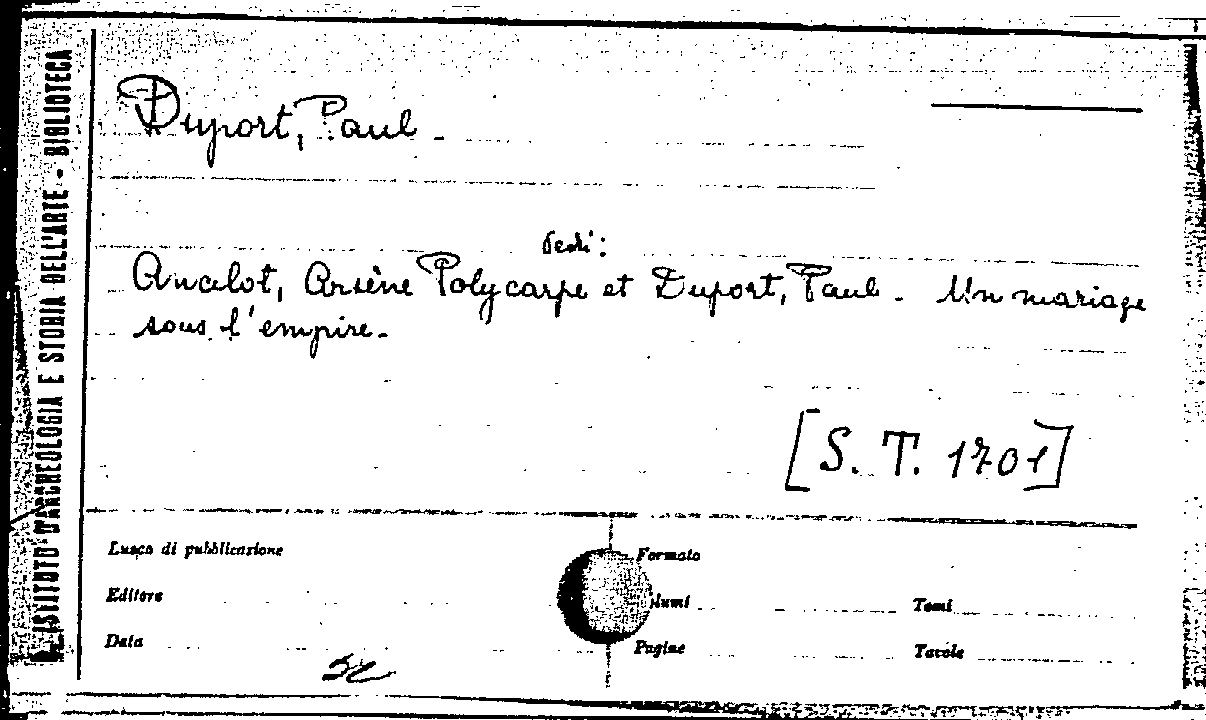 ISTITUTO D'ARCHEOLOGIA E STORIA DELL'ARTE - BIBLIOTECA
Duport, Paul -
Vedi:
Ancelot, Arsène Polycarpe et Duport, Paul - Un mariage
sous l'empire -
[S. T. 1701]
Luogo di pubblicazione
Formato
Editore
lumi
Tomi
Data
Pagine
Tavole